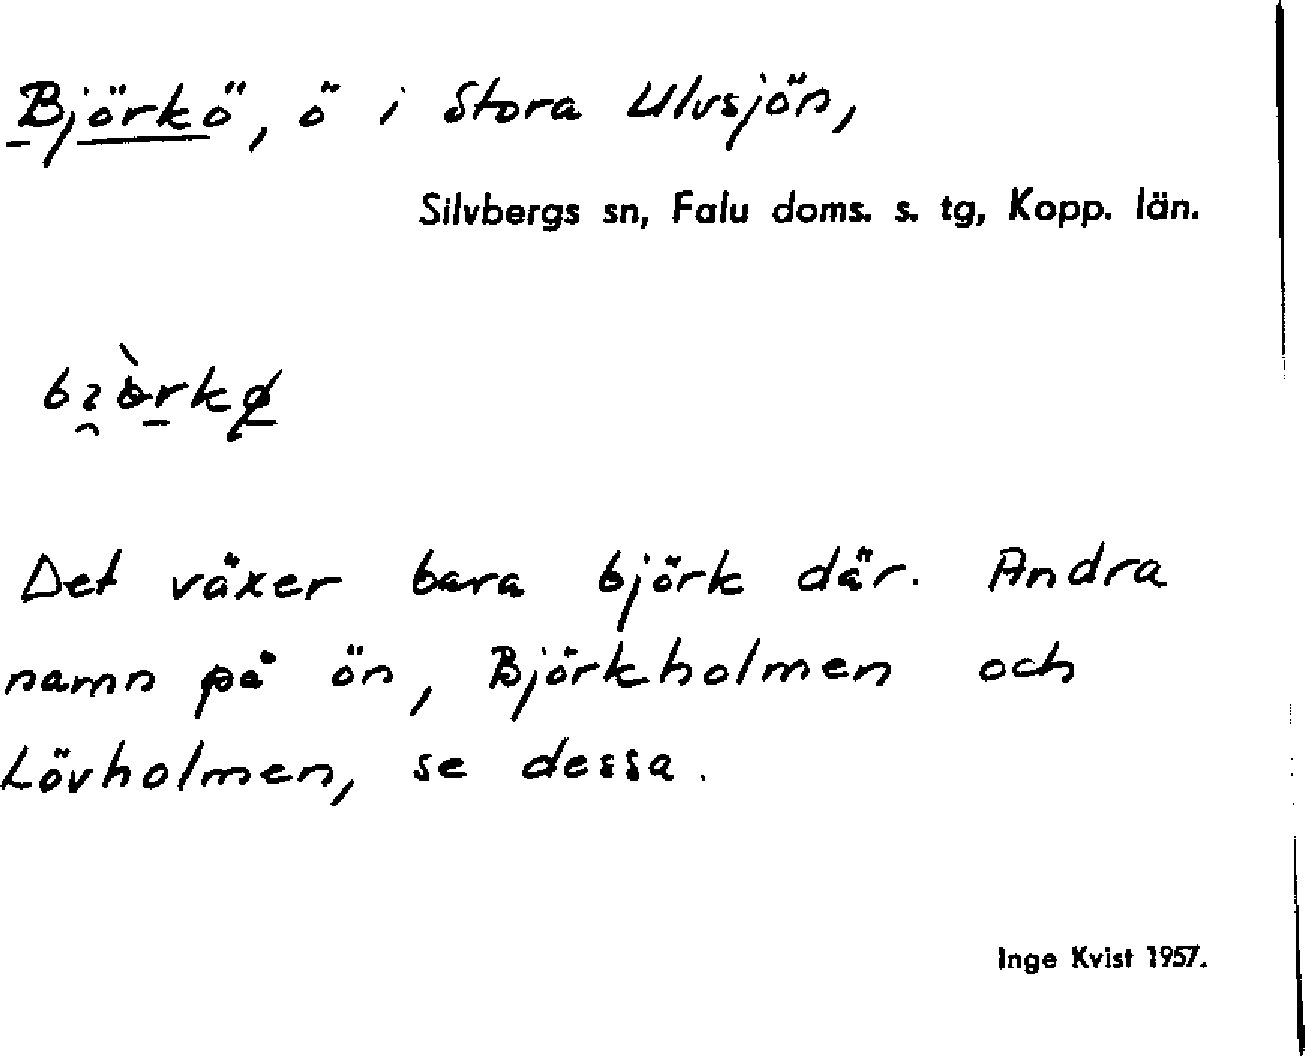 Björkö, ö i Stora Ulvsjön,
Silvbergs sn, Falu doms. s. tg, Kopp. län.
Det växer bara björk där. Andra
namn på ön, Björkholmen och
Lövholmen, se dessa.
Inge Kvist 1957.